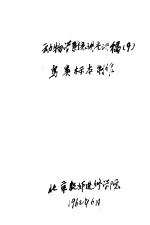 动物学野外实习讲稿(9)
鸟类标本制作
北京教师进修学院
1962年6月